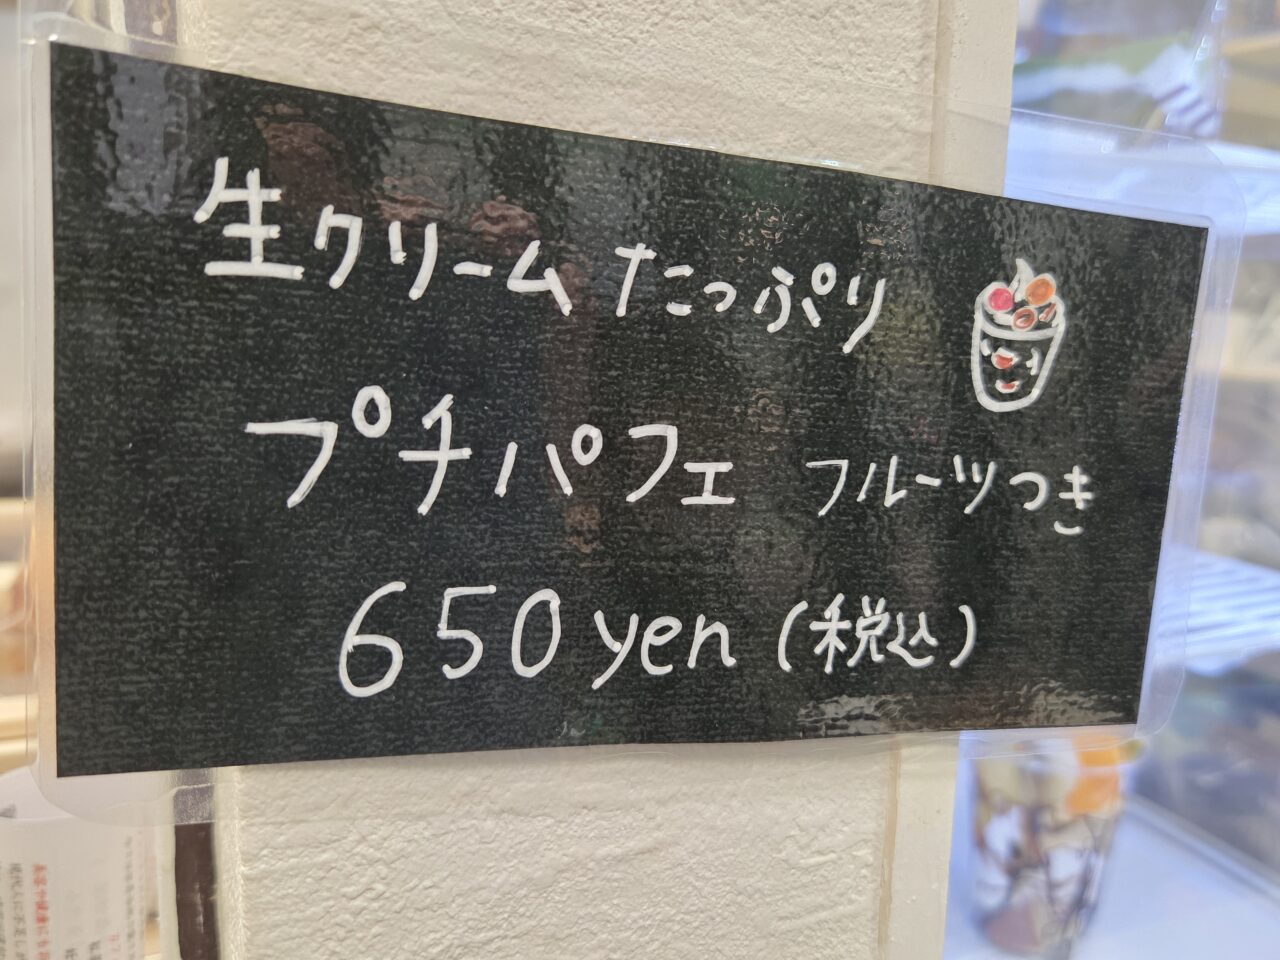 生クリーム たっぷり
プチパフェ フルーツつき
650yen (税込)